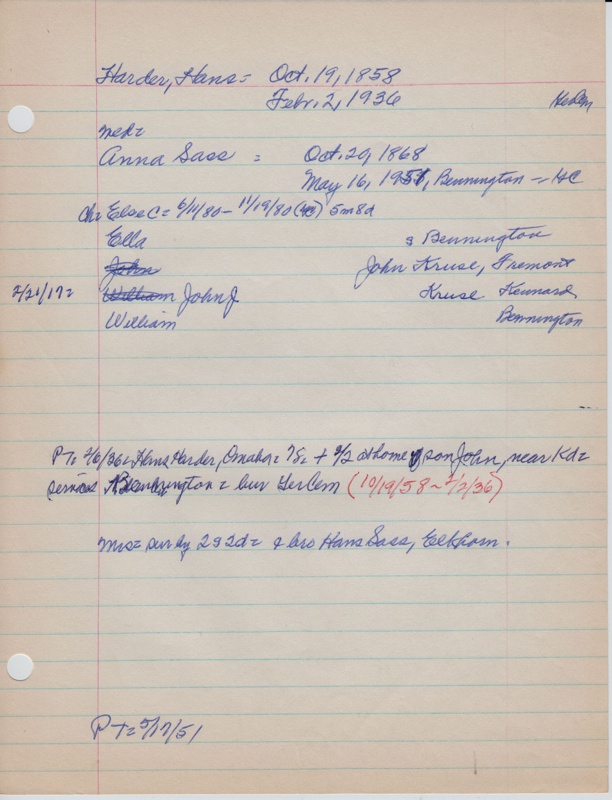 Harder, Hans = Oct. 19, 1858
Febr. 2, 1936
med=
Anna Sass = Oct. 20, 1868
May 16, 1951, Bennington - HC
Ch: Else C = 6/11/80 - 11/19/80 (HC) 5m8d
Ella Bennington
John John Kruse, Fremont
2/21/17= William John J Kruse Kennard
William Bennington
PT= 2/6/36= Hans Harder, Omaha= 78= + 2/2 at home of son John, near Kd=
services Bennington= bur GerCem (10/19/58 ~ 2/2/36)
Mrs= surv by 2s 2d= & bro Hans Sass, Elkhorn.
PT= 5/17/51